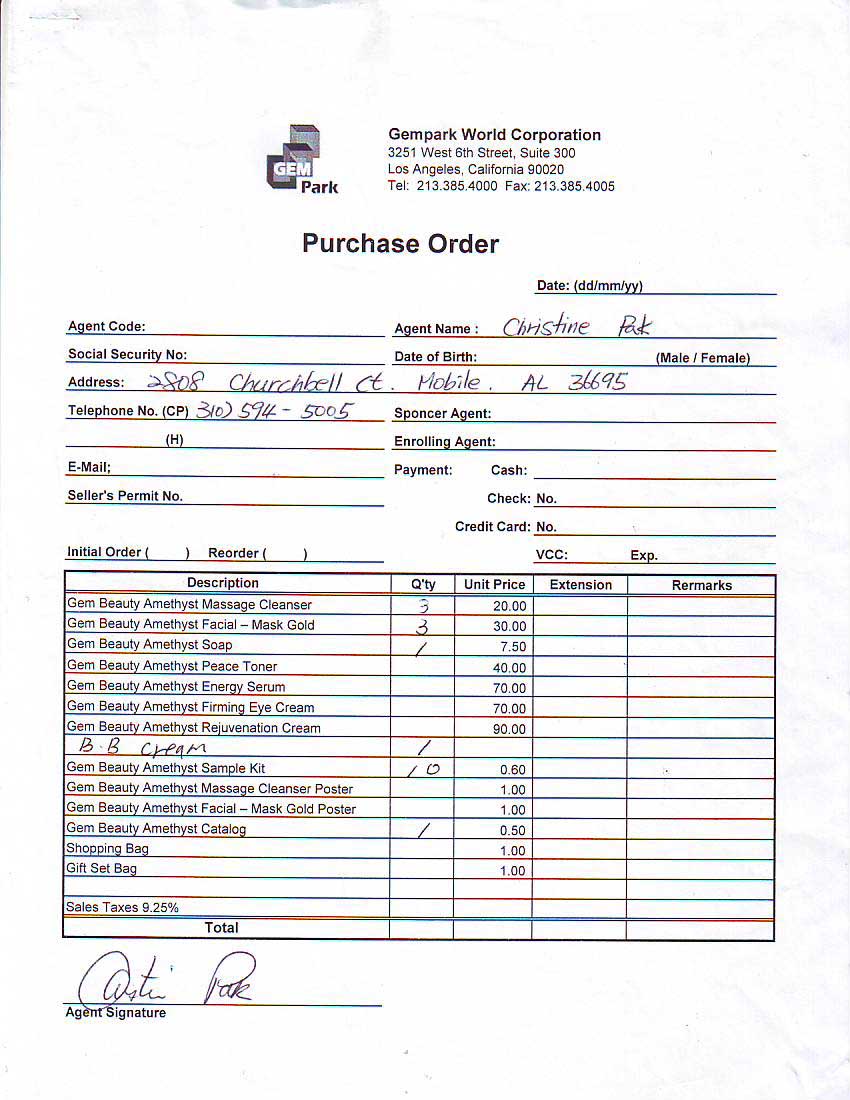 GEM
Park
Gempark World Corporation
3251 West 6th Street, Suite 300
Los Angeles, California 90020
Tel: 213.385.4000 Fax: 213.385.4005
Purchase Order
Date: (dd/mm/yy)
Agent Code: Agent Name : Christine Pak
Social Security No: Date of Birth: (Male / Female)
Address: 2808 Churchbell Ct. Mobile. AL 36695
Telephone No. (CP) 310) 594 - 5005 Sponcer Agent:
(H) Enrolling Agent:
E-Mail; Payment: Cash:
Seller's Permit No. Check: No.
Credit Card: No.
Initial Order ( ) Reorder ( ) VCC: Exp.
Description Q'ty Unit Price Extension Rermarks
Gem Beauty Amethyst Massage Cleanser 3 20.00
Gem Beauty Amethyst Facial – Mask Gold 3 30.00
Gem Beauty Amethyst Soap 1 7.50
Gem Beauty Amethyst Peace Toner 40.00
Gem Beauty Amethyst Energy Serum 70.00
Gem Beauty Amethyst Firming Eye Cream 70.00
Gem Beauty Amethyst Rejuvenation Cream 90.00
B.B cream 1
Gem Beauty Amethyst Sample Kit 10 0.60
Gem Beauty Amethyst Massage Cleanser Poster 1.00
Gem Beauty Amethyst Facial – Mask Gold Poster 1.00
Gem Beauty Amethyst Catalog 1 0.50
Shopping Bag 1.00
Gift Set Bag 1.00
Sales Taxes 9.25%
Total
Pak
Agent Signature